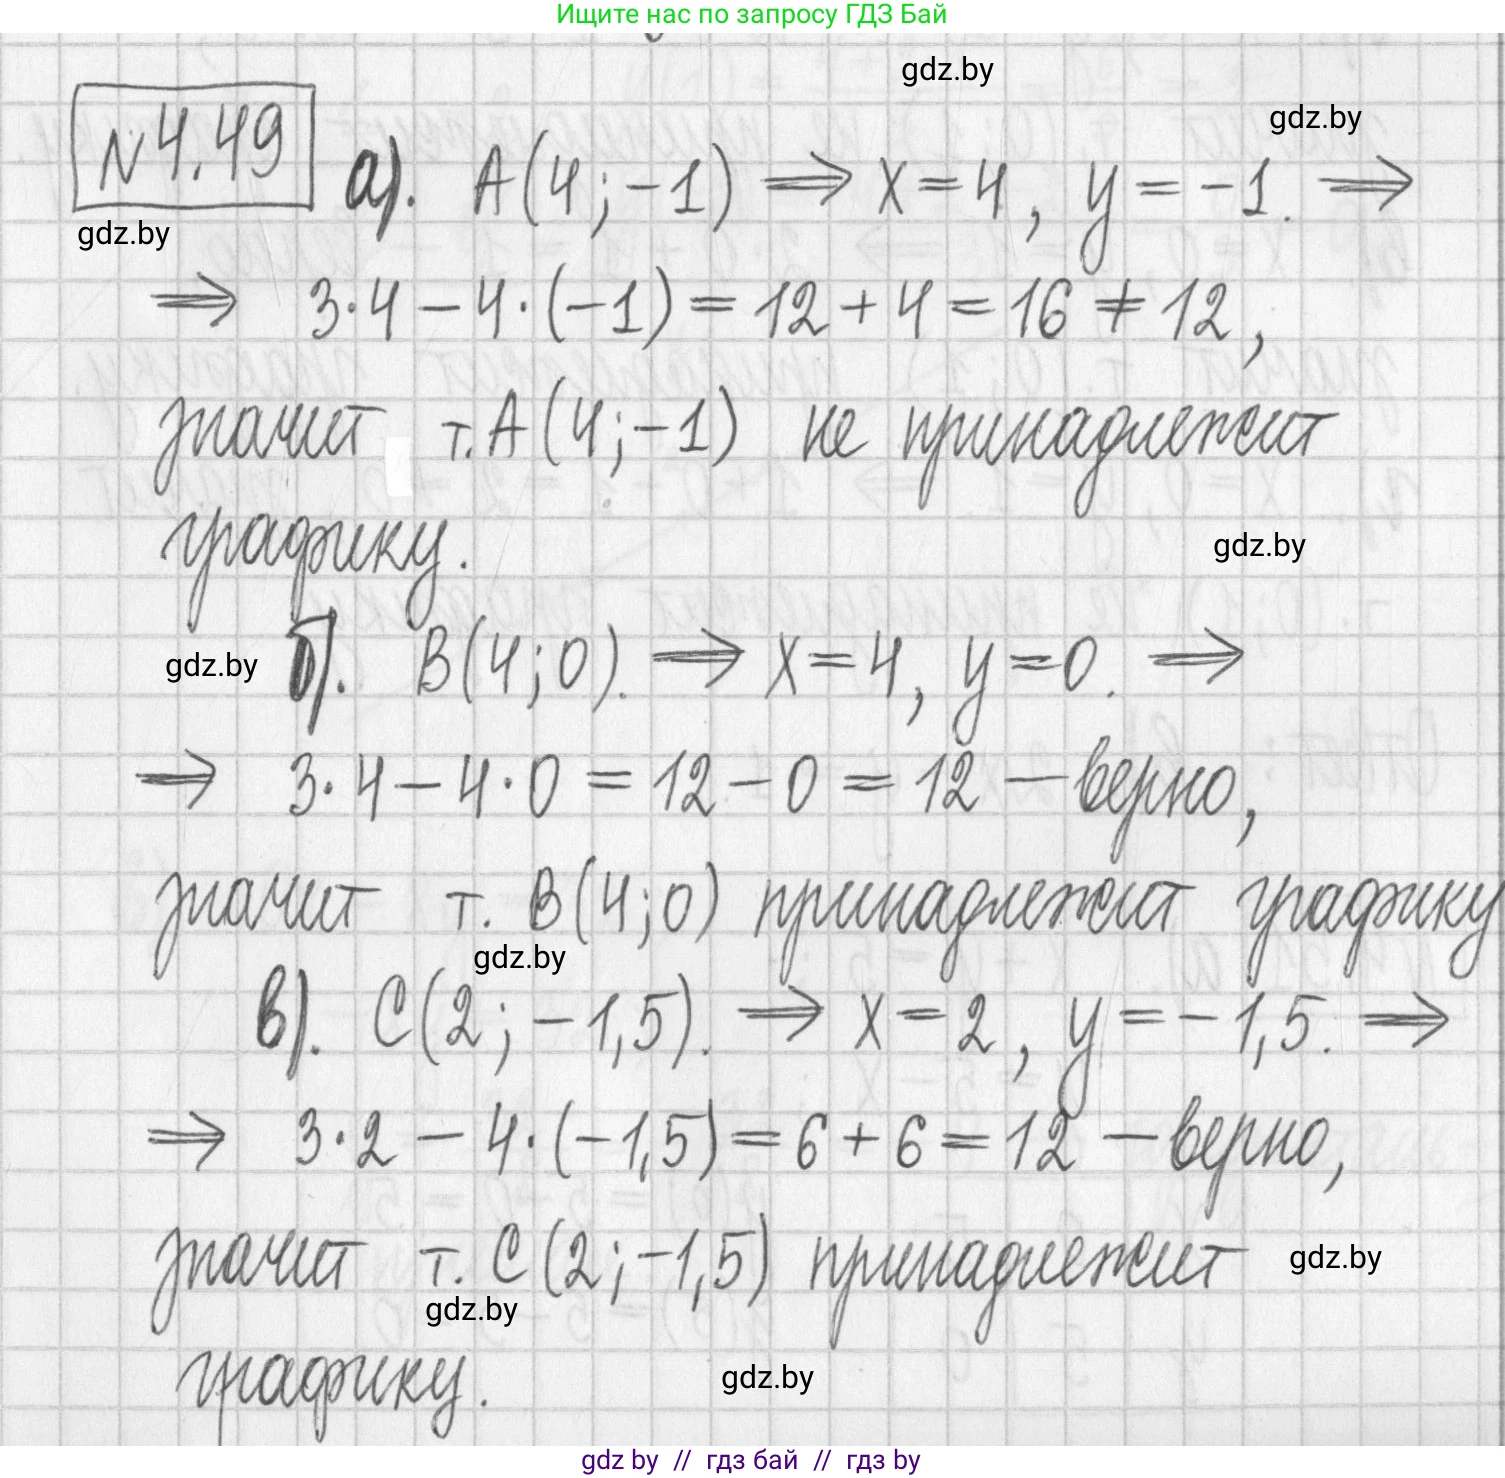 Ищите нас по запросу ГДЗ Бай
gdz.by
gdz.by
№4.49 а). A(4;-1) ⟹ x=4, y=-1. ⟹
gdz.by
⟹ 3·4-4·(-1)=12+4=16≠12,
значит т.A(4;-1) не принадлежит
графику.
gdz.by
gdz.by б). B(4;0). ⟹ x=4, y=0. ⟹
⟹ 3·4-4·0=12-0=12 – верно,
значит т. B(4;0) принадлежит графику
gdz.by
в). C(2;-1,5). ⟹ x=2, y=-1,5. ⟹
⟹ 3·2-4·(-1,5)=6+6=12 – верно,
значит т. C(2;-1,5) принадлежит
gdz.by
gdz.by
графику.
gdz.by
gdz by // гдз бай // гдз by